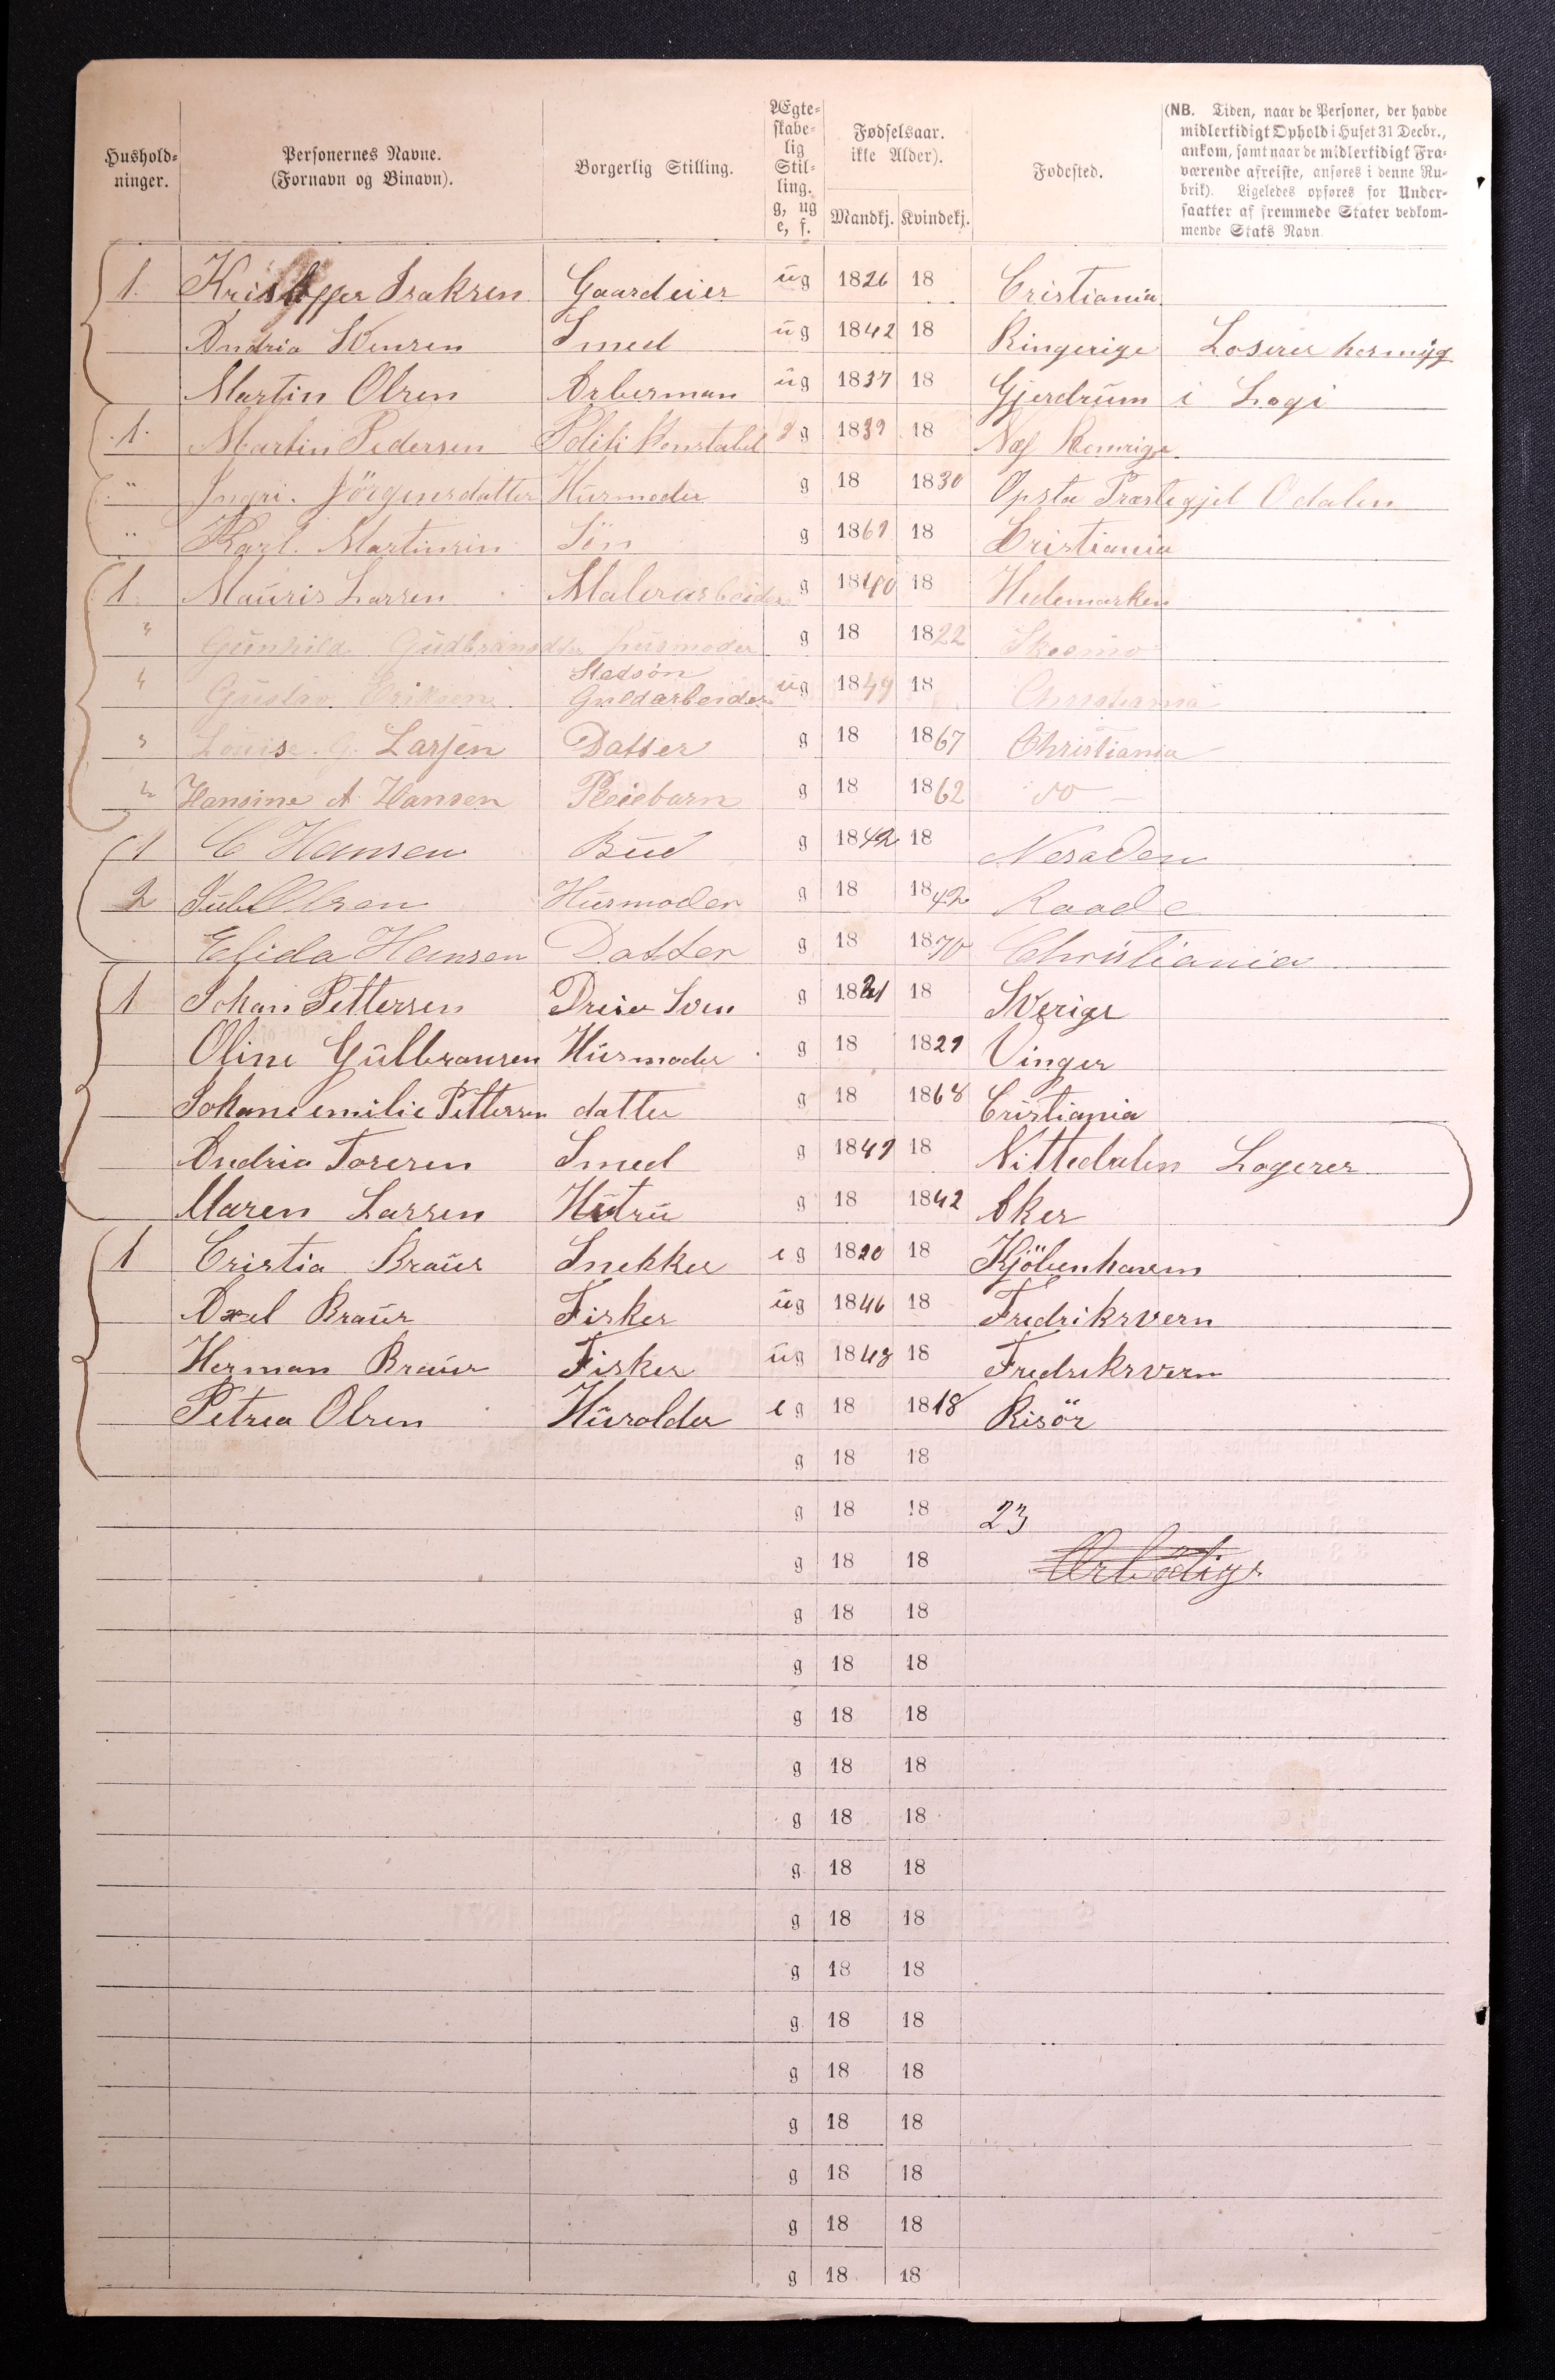 Hushold-
ninger.
Personernes Navne.
(Fornavn og Binavn).
Borgerlig Stilling.
Ægte-
skabe-
lig
Stil-
ling.
g, ug
e, f.
Fødselsaar.
ikke Alder).
Mandkj. Kvindekj.
Fødested.
(NB. Tiden, naar de Personer, der havde
midlertidigt Ophold i Huset 31 Decbr.,
ankom, samt naar de midlertidigt Fra-
værende afreiste, anføres i denne Ru-
brik). Ligeledes opføres for Under-
saatter af fremmede Stater vedkom-
mende Stats Navn.
1. Kristoffer Isaksen Gaardeier ug 1826 18 Cristiania
Andria Svensen Smed ug 1842 18 Ringerige Loserer hos myg
Martin Olsen Arberman ug 1837 18 Gjerdrum i Logi
1. Martin Pedersen Politi Konstabel g 1839 18 Næs Romerige
" Ingri. Jörgensdatter Husmoder g 18 1830 Opsta Præstegjel Odalen
" Karl. Martinsin Sön g 1869 18 Cristiania
1 Mauris Larsen Malerarbeider g 1840 18 Hedemarken
" Gunhild Gudbransdter husmoder g 18 1822 Skesmo
Stedsön
" Gustav Eriksen Guldarbeider ug 1849 18 Christiania
" Louise G. Larsen Datter g 18 1867 Christiania
" Hansine A Hansen Pleiebarn g 18 1862 do
1 C Hansen Bud g 1842 18 Nesodden
2 Juli Olsen Husmoder g 18 1842 Raade
Elida Hansen Datter g 18 1870 Christiania
1 Johan Pettersen Dreier Sven g 1821 18 Sverige
Oline Gulbransen Husmoder g 18 1829 Vinger
Johane emilie Pettersen datter g 18 1868 Cristiania
Andria Toresen Smed g 1849 18 Nittedalen Logerer
Maren Larsen Hustru g 18 1842 Aker
1 Cristia Braur Snekker e g 1820 18 Kjöbenhavem
Axel Braur Fisker ug 1846 18 Fredriksvern
Herman Braur Fisker ug 1848 18 Fredriksvern
Petrea Olsen Husolder e g 18 1818 Risör
g 18 18
g 18 18 23
g 18 18 Ærbödigs
g 18 18
g 18 18
g 18 18
g 18 18
g 18 18
g 18 18
g 18 18
g 18 18
g 18 18
g 18 18
g 18 18
g 18 18
g 18 18
g 18 18